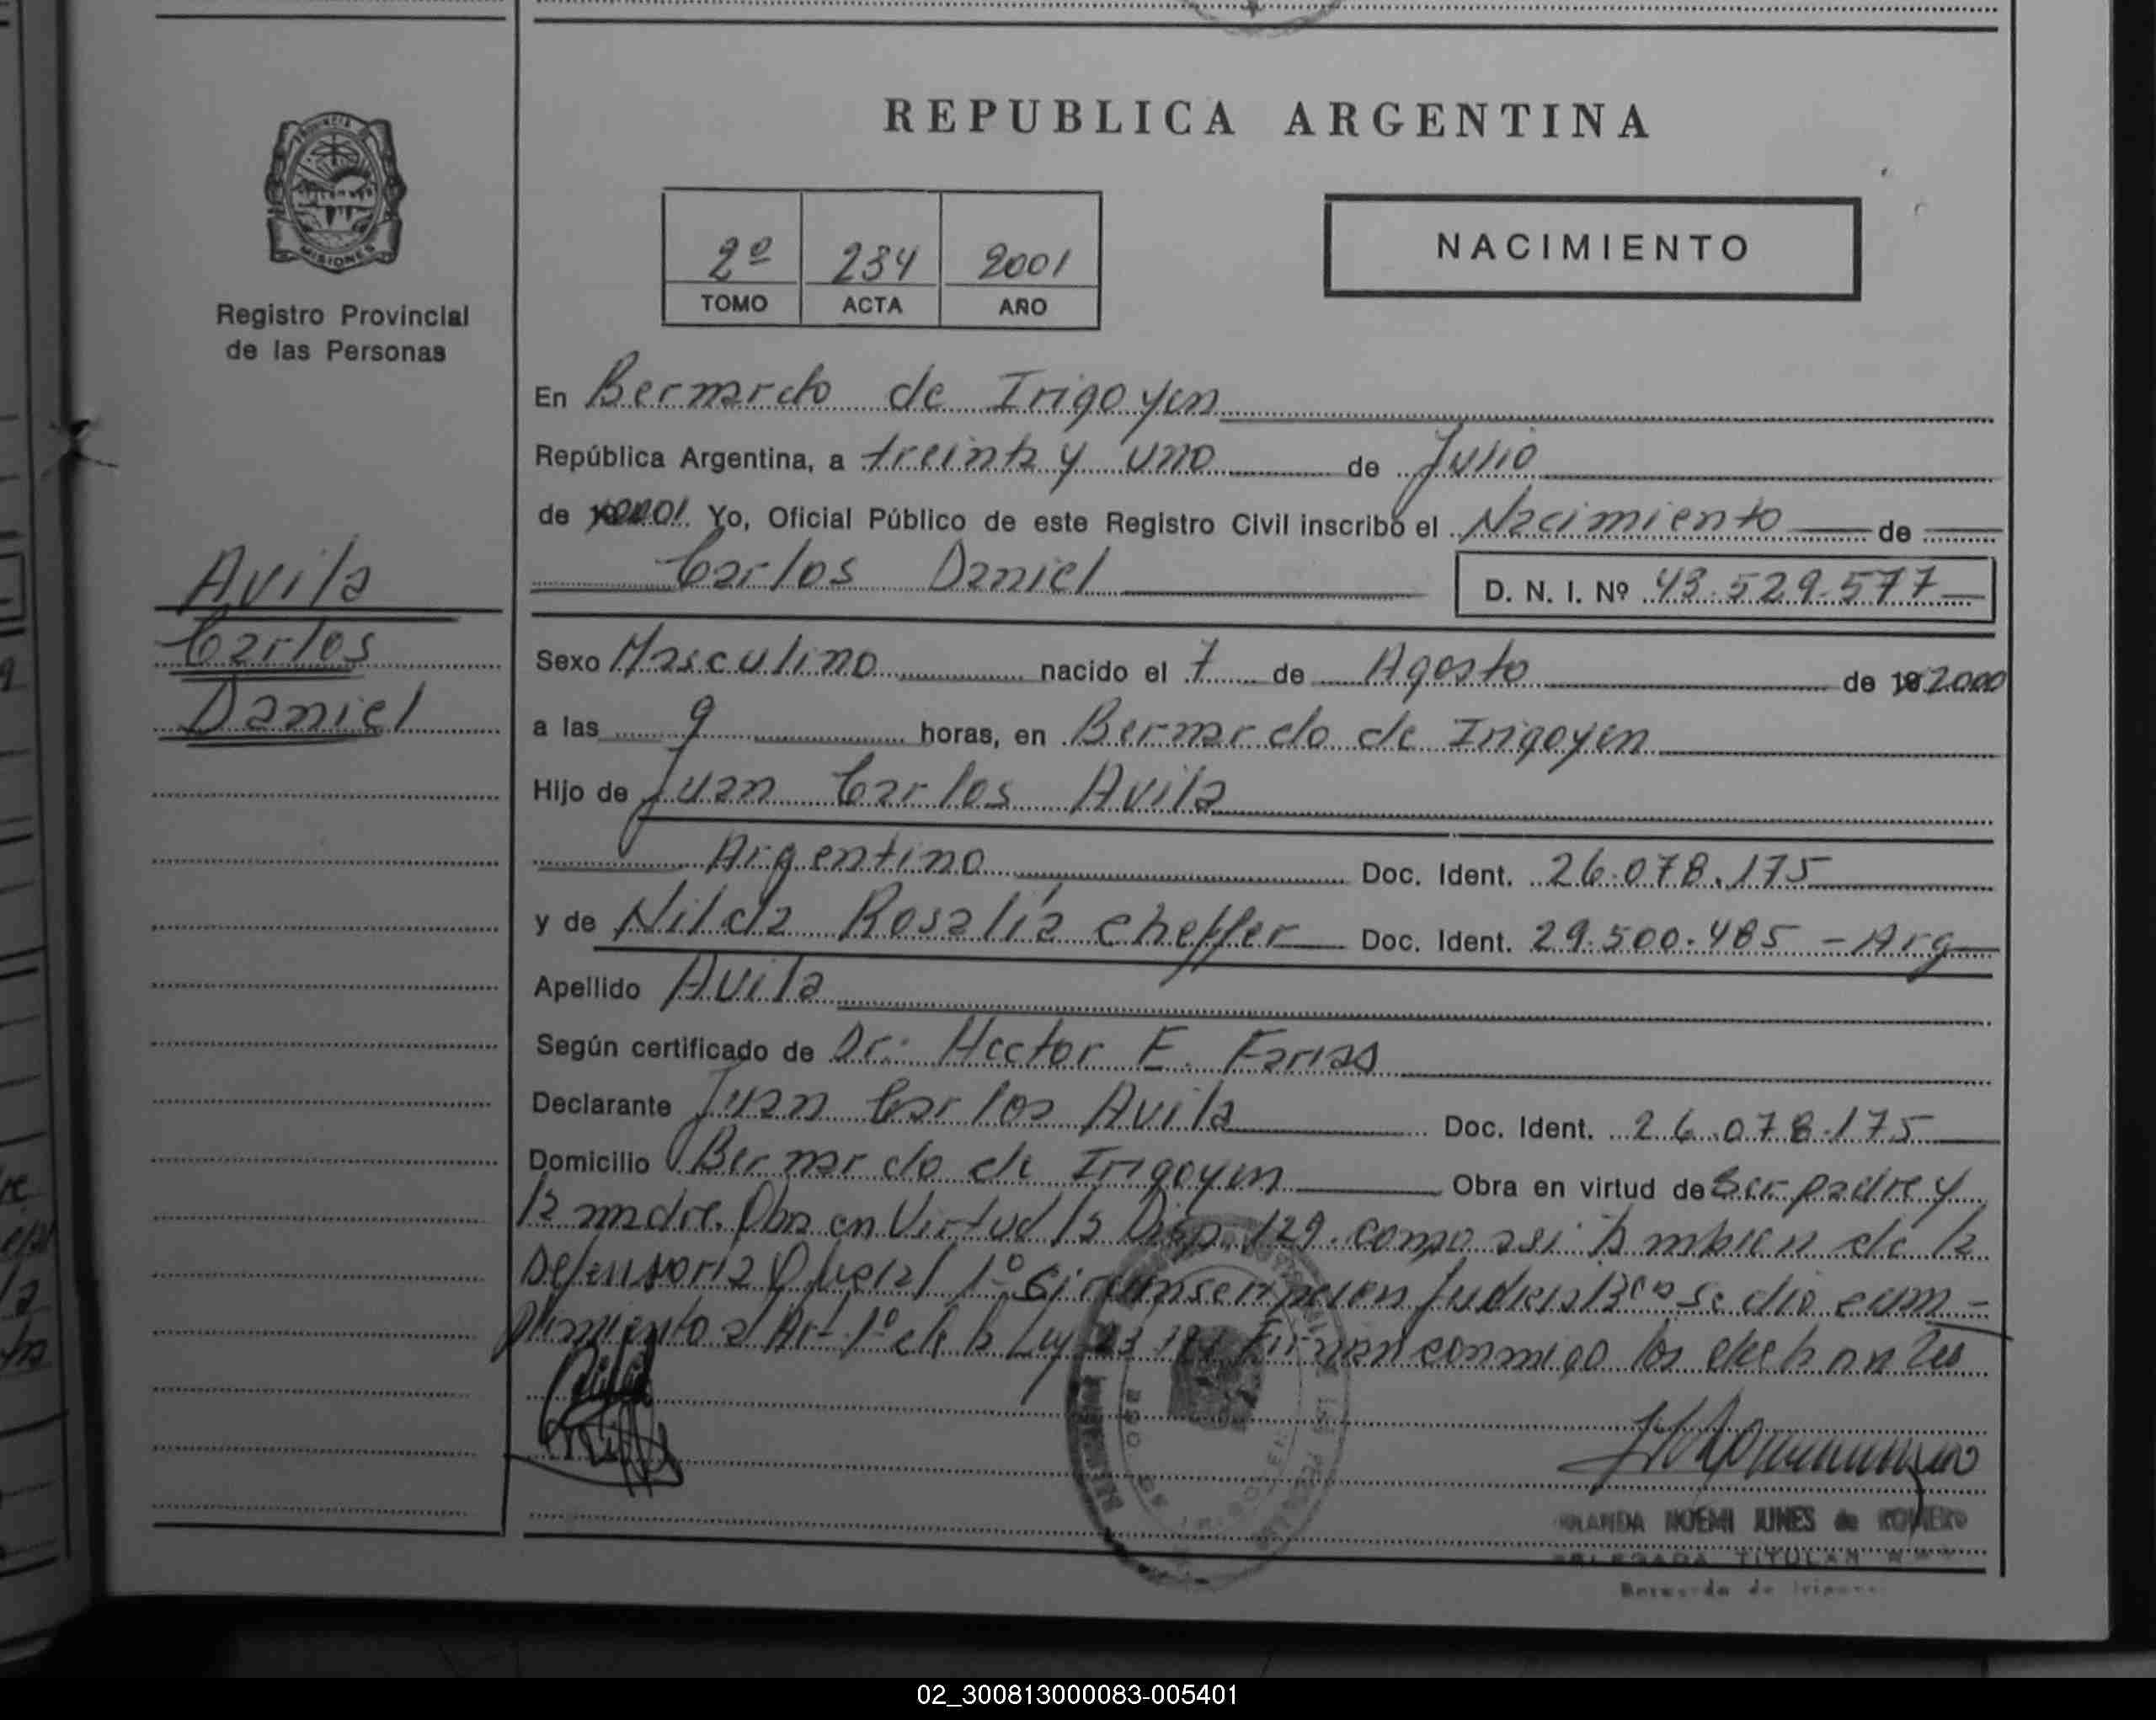 REPUBLICA ARGENTINA
PROVINCIA
MISIONES
Registro Provincial
de las Personas
2º 234 2001
TOMO ACTA AÑO
NACIMIENTO
En Bernardo de Irigoyen
República Argentina, a treinta y uno de Julio
de 2001 Yo, Oficial Público de este Registro Civil inscribo el Nacimiento de
Carlos Daniel D. N. I. Nº 43.529.577
Avila
Carlos
Daniel
Sexo Masculino nacido el 7 de Agosto de 19 2000
a las 9 horas, en Bernardo de Irigoyen
Hijo de Juan Carlos Avila
Argentino Doc. Ident. 26.078.175
y de Nilda Rosalía Cheffer Doc. Ident. 29.500.485 - Arg
Apellido Avila
Según certificado de Dr. Hector E. Farias
Declarante Juan Carlos Avila Doc. Ident. 26.078.175
Domicilio Bernardo de Irigoyen Obra en virtud de Ser padre y
la madre. Obra en Virtud la Disp. 129. como asi tambien de la
Defensoria Oficial 1º Circunscripcion Judicial se dio cum-
plimiento al Art. 1º de la Ley Firman conmigo los declarantes
NOEMI JUNES de ROMERO
DELEGADA TITULAR
Bernardo de Irigoyen
02_300813000083-005401